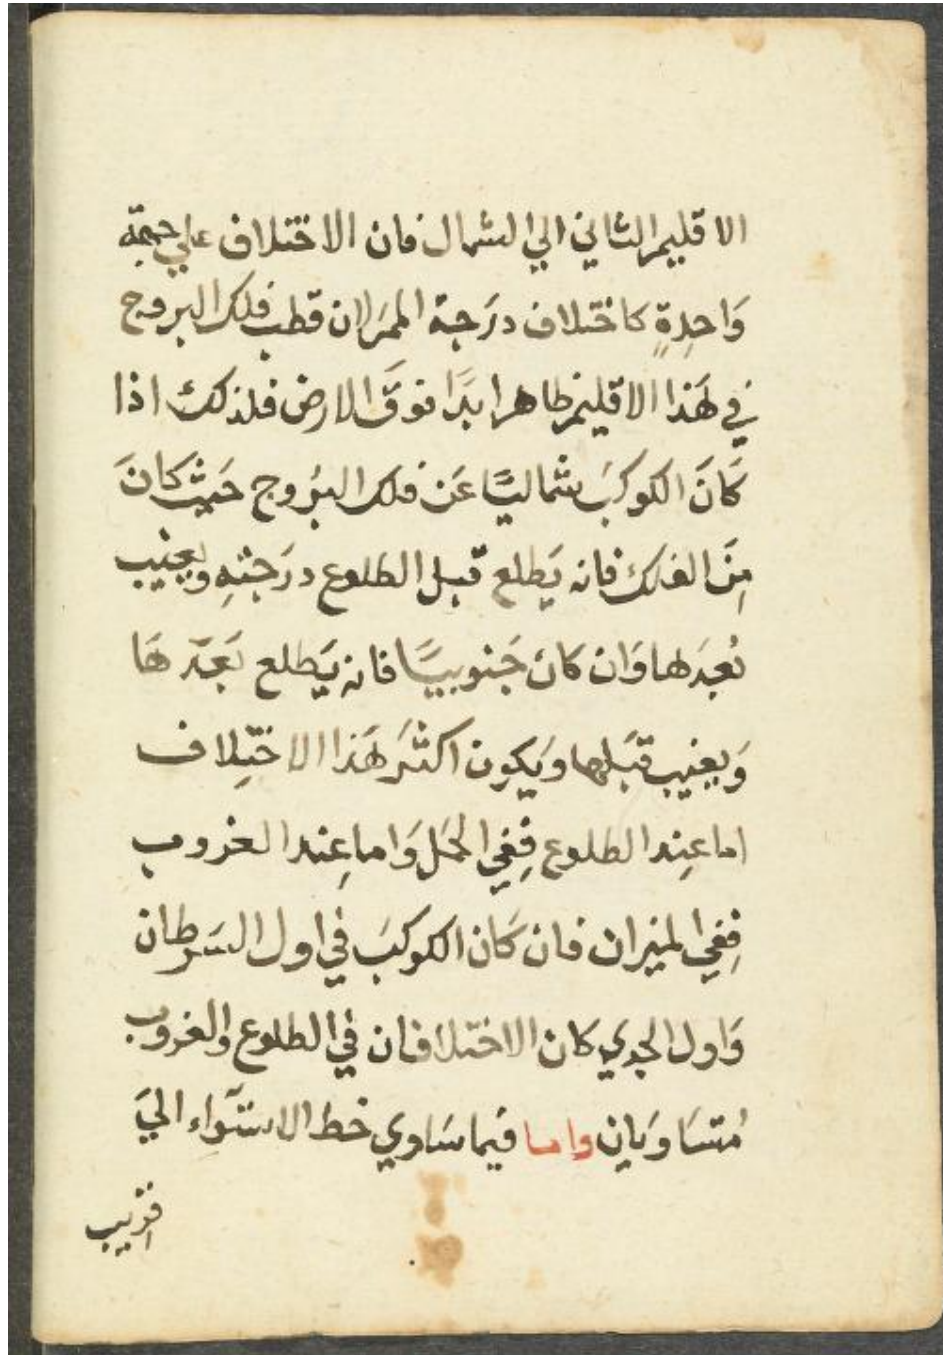 الاقليم الثاني الي الشمال فان الاختلاف علي جهة
وَاحِدةٍ كاختلاف درَجة الممرَ لان قطب فلك البروج
في هَذا الاقليم ظاهرا ابدًا فوقَ الارض فلذلك اذا
كَانَ الكوكبَ شماليًا عَن فلك البُروج حَيث كانَ
مِنَ الفلك فانه يَطلع قبل الطلوع درَجتهِ ويغيب
بُعدَها وَان كانَ جَنوبيًا فانه يَطلع بَعدَ هَا
وَيغيب قبَلها ويَكون اكثَر هَذا الاختِلاف
اما عِند الطلوع فِفي الحَمَل وَاما عِند الغروب
فِفي الميزان فان كَان الكوكبَ في اول السَرطان
وَاول الجدي كان الاختلافان في الطلوع والغروب
مُتسَاوَيان واما فيما سَاوي خط الاستَوَاء اليَ
قريب